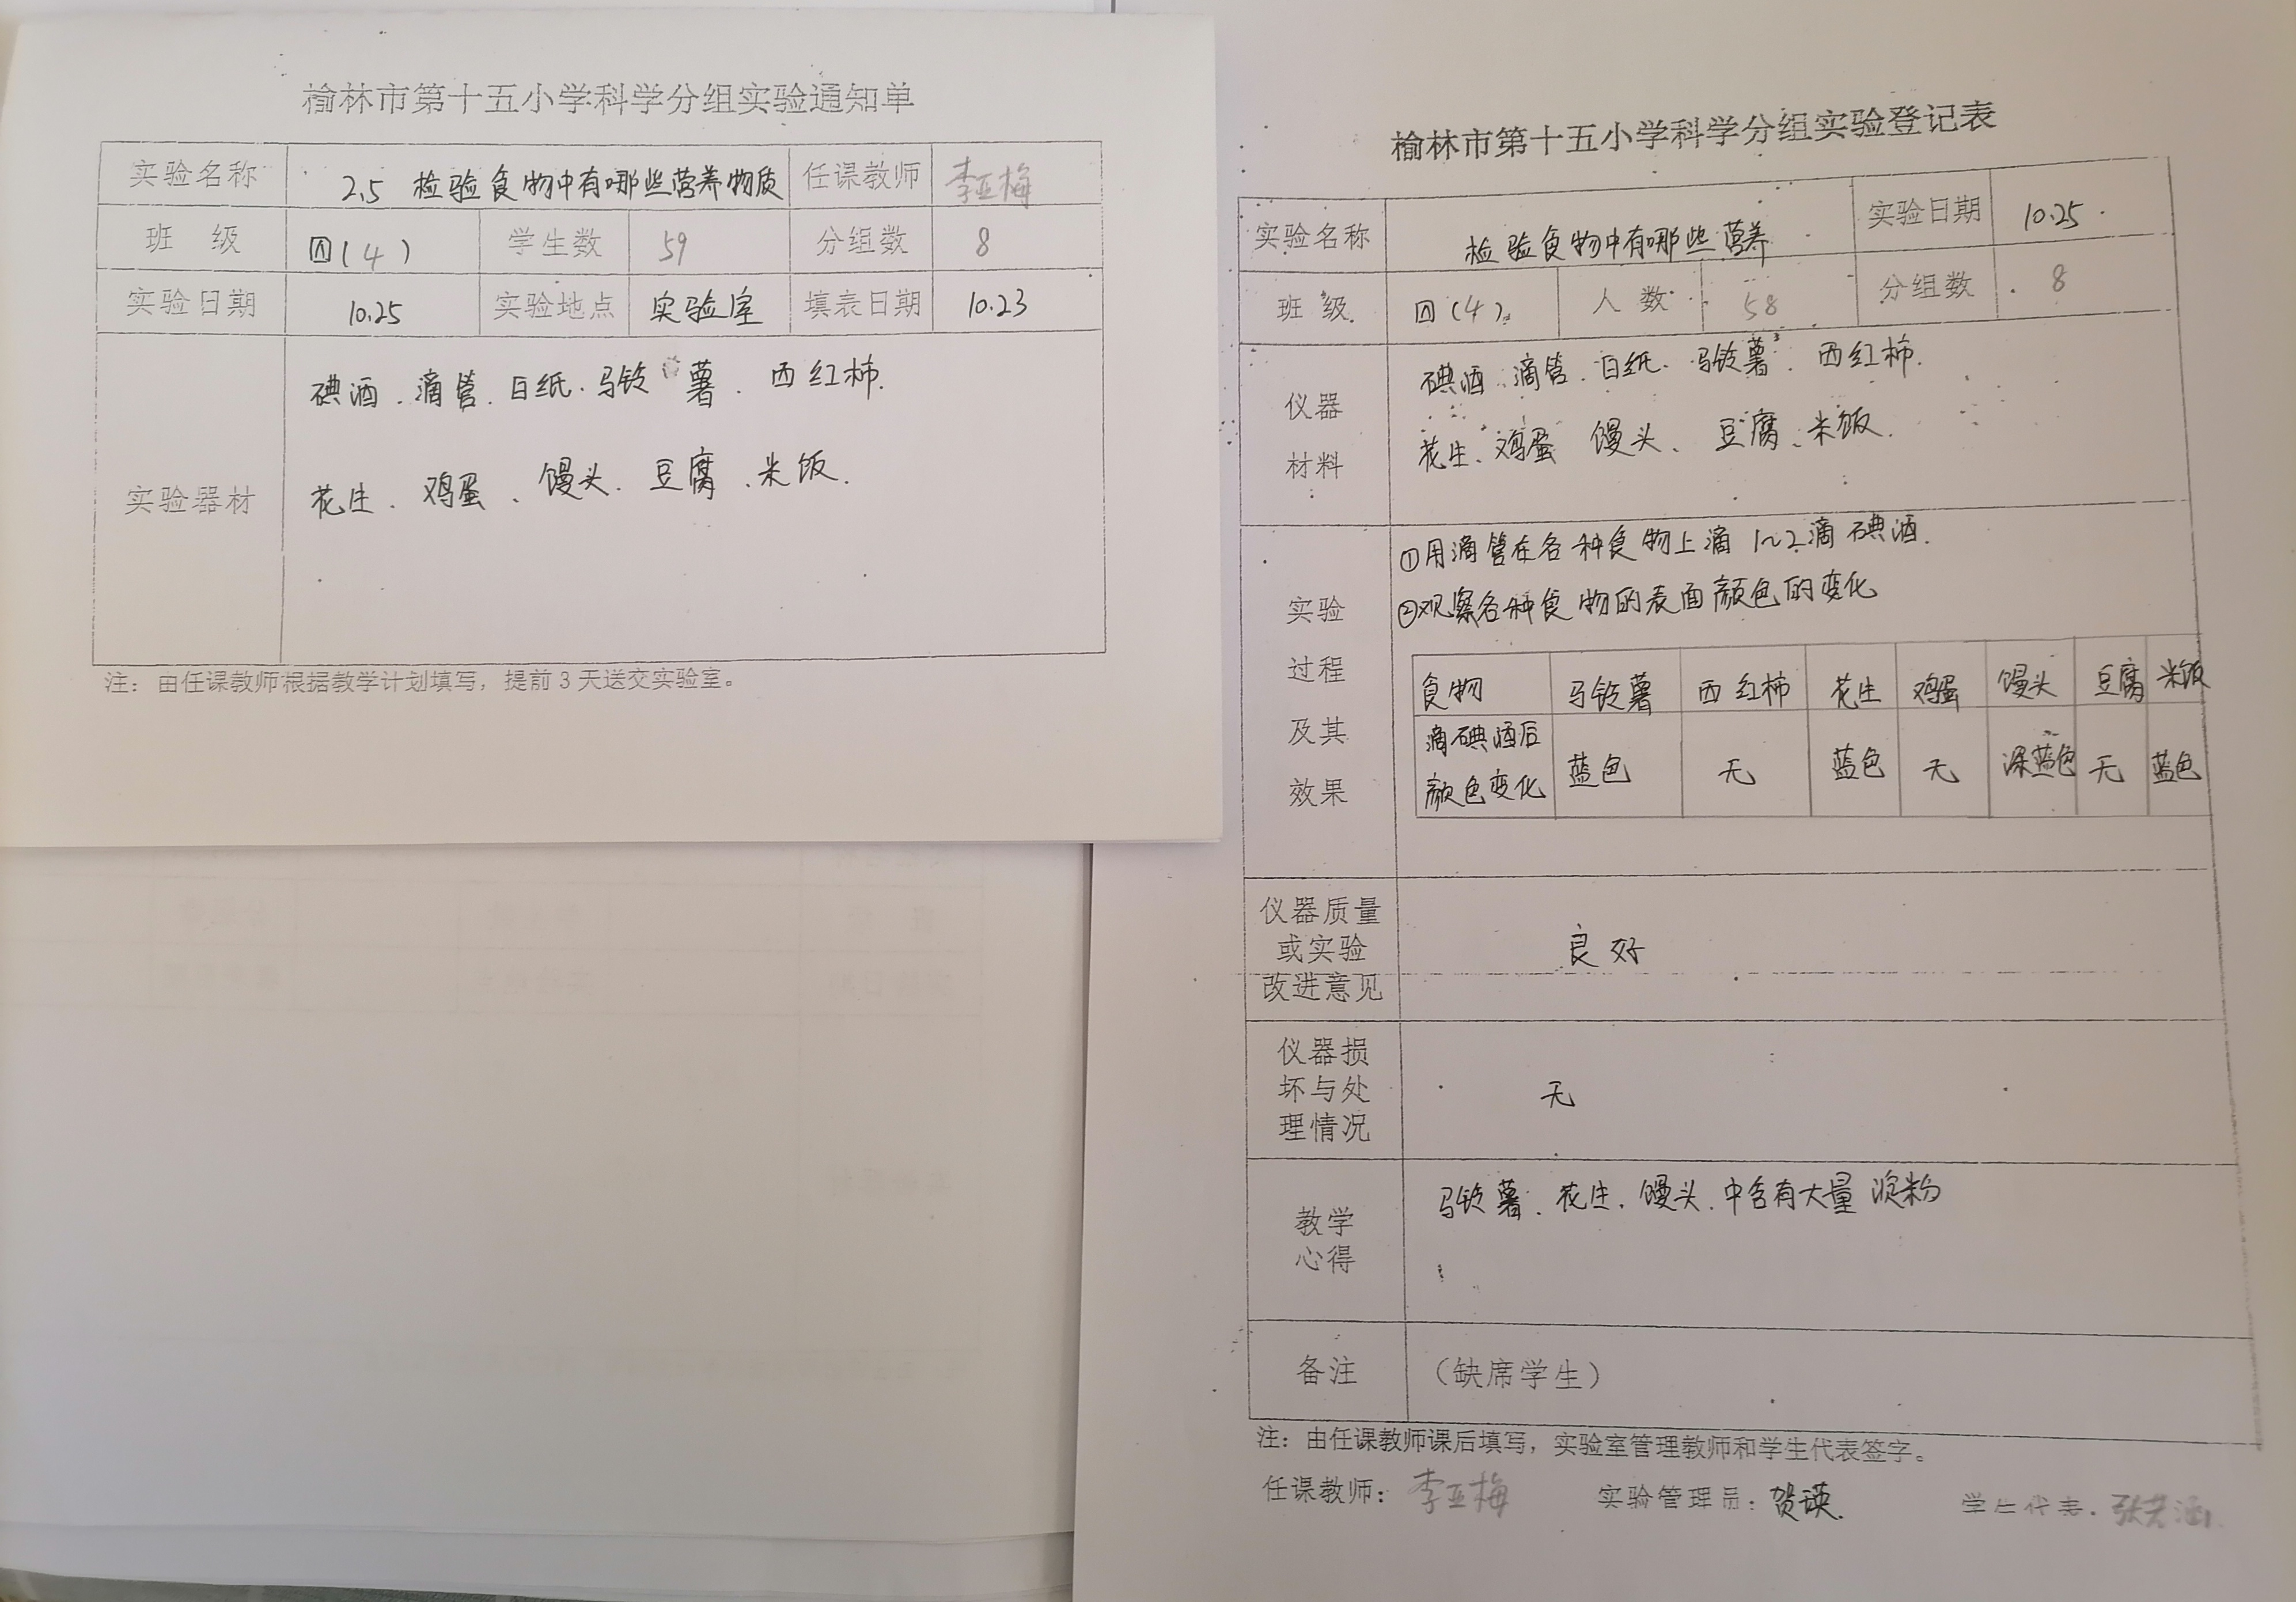 榆林市第十五小学科学分组实验通知单
实验名称 2.5 检验食物中有哪些营养物质 任课教师 李亚梅
班 级 四(4) 学生数 59 分组数 8
实验日期 10.25 实验地点 实验室 填表日期 10.23
实验器材
碘酒、滴管、白纸、马铃薯、西红柿.
花生、鸡蛋、馒头、豆腐、米饭.
注：由任课教师根据教学计划填写，提前3天送交实验室。
榆林市第十五小学科学分组实验登记表
实验名称 检验食物中有哪些营养 实验日期 10.25.
班 级 四(4) 人 数 58 分组数 8
仪器
材料
碘酒、滴管、白纸、马铃薯、西红柿.
花生、鸡蛋 馒头、豆腐、米饭.
实验
过程
及其
效果
①用滴管在各种食物上滴1~2滴碘酒.
②观察各种食物的表面颜色的变化
食物 马铃薯 西红柿 花生 鸡蛋 馒头 豆腐 米饭
滴碘酒后
颜色变化 蓝色 无 蓝色 无 深蓝色 无 蓝色
仪器质量
或实验
改进意见
良好
仪器损
坏与处
理情况
无
教学
心得
马铃薯、花生、馒头、中含有大量淀粉
备注 （缺席学生）
注：由任课教师课后填写，实验室管理教师和学生代表签字。
任课教师：李亚梅 实验管理员：贺瑛. 学生代表.